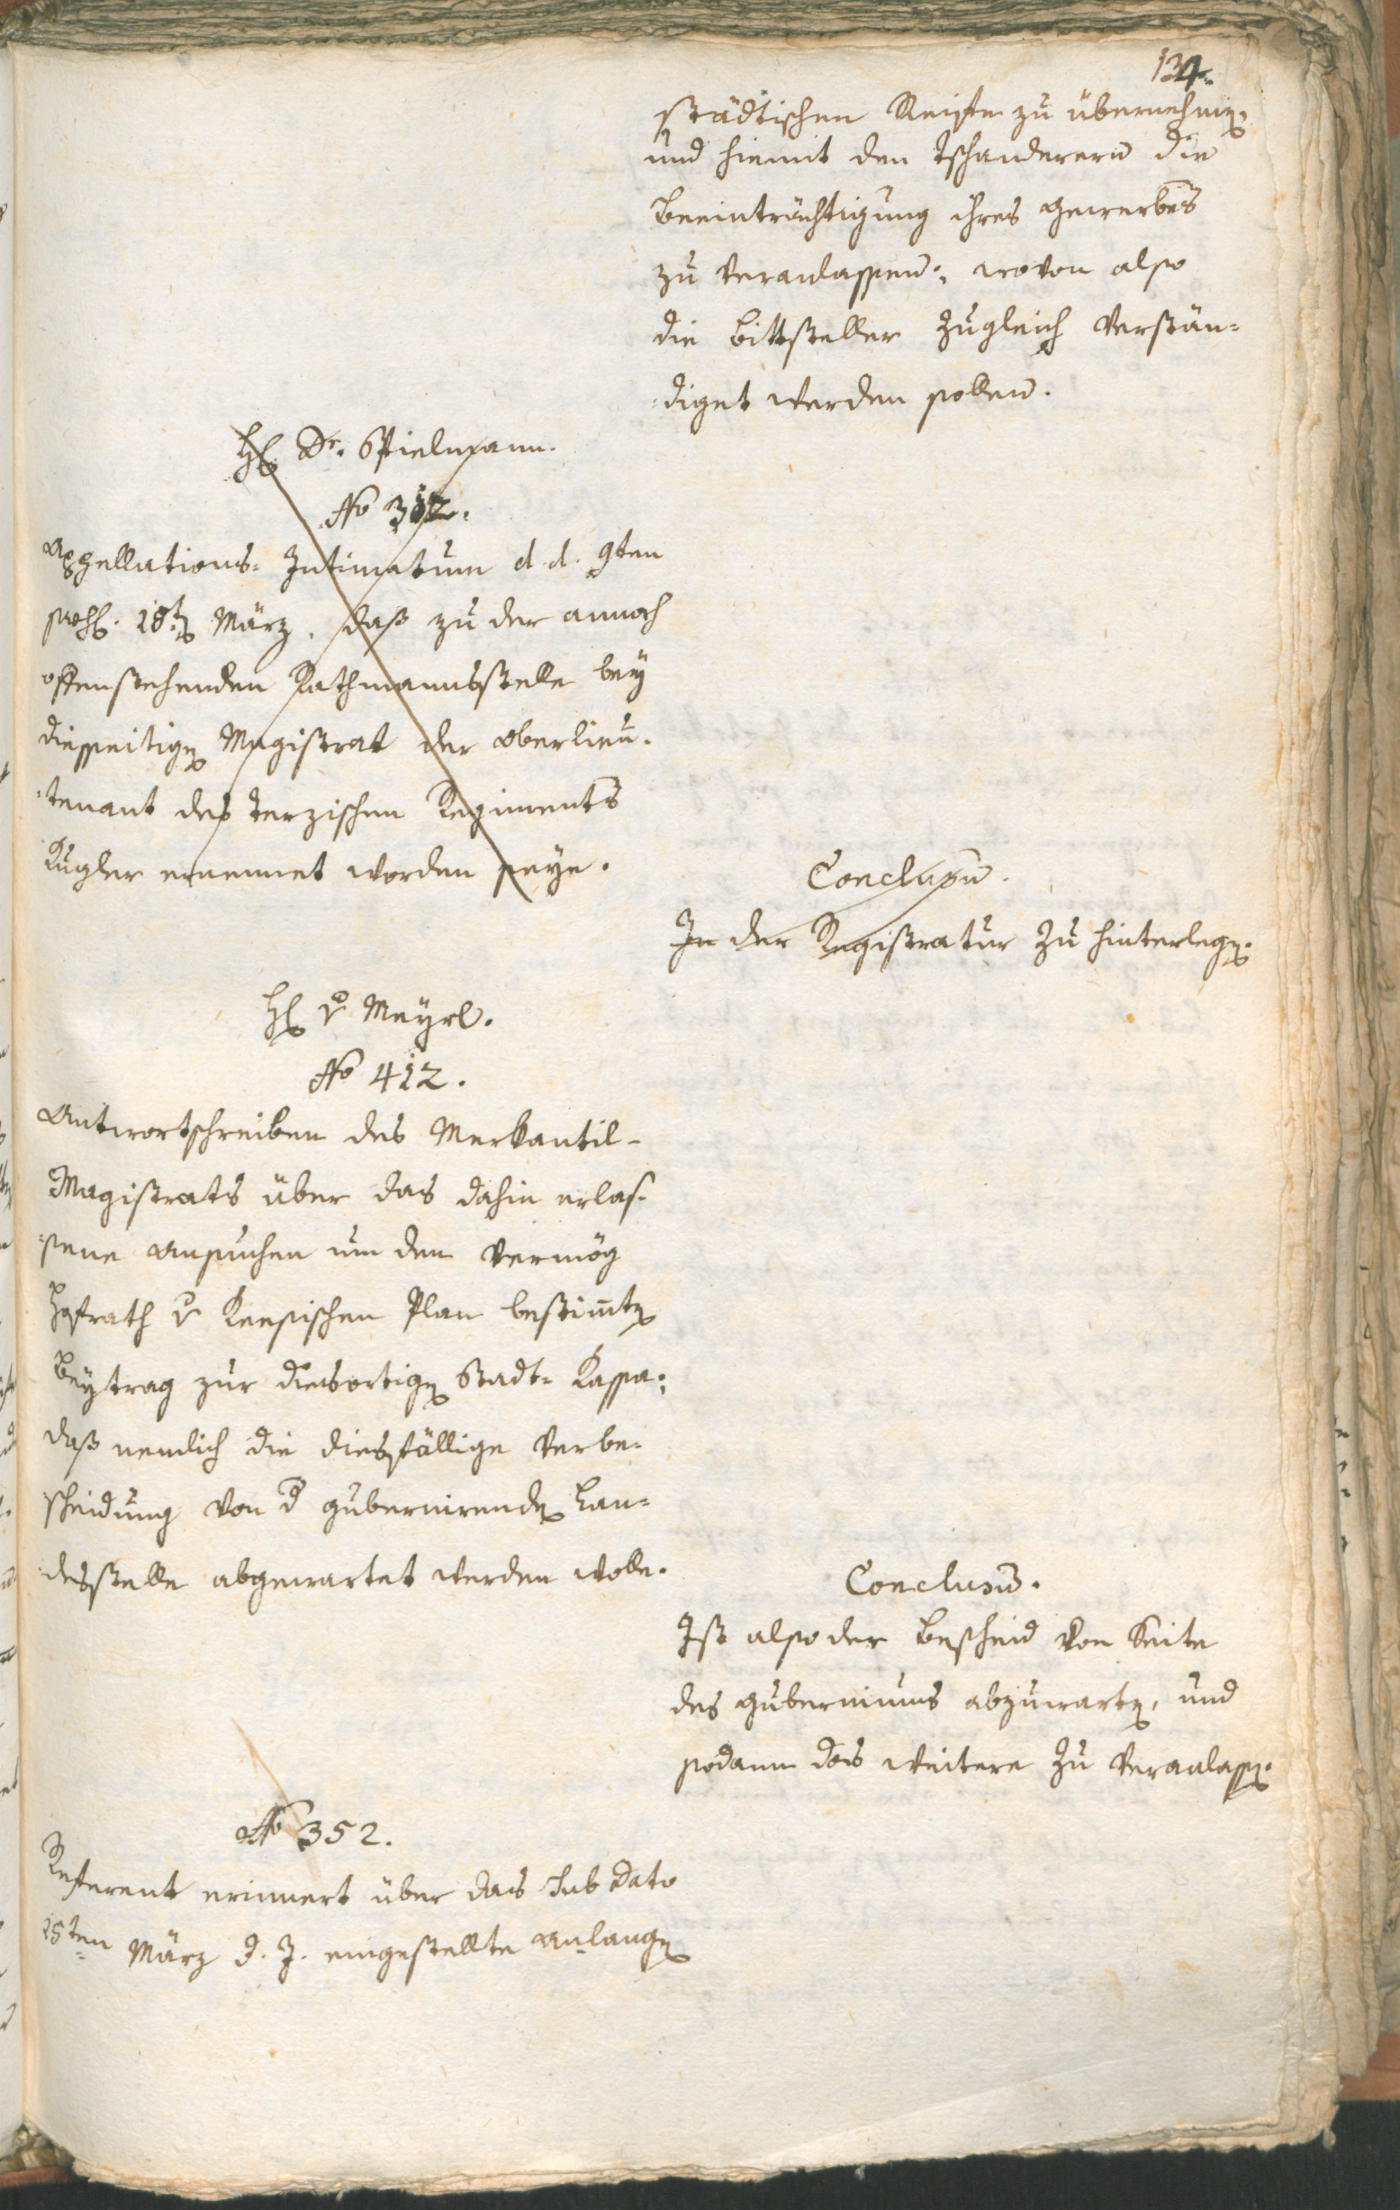 134.
städtischen Reiste zu übernehmen,
und hiemit den Tschanderern die
Beeinträchtigung ihres Gewerbes
zu veranlassen; wovon also
die Bittsteller zugleich verstän=
diget werden sollen.
H. Dr. Spielmann.
No 312.
Appellations= Intimatum d. d. 9ten
pros. 18ten März. daß zu der annoch
offenstehenden Rathmannsstelle bey
diesseitigen Magistrat der Oberlieu=
tenant des Terzischen Regiments
Kugler ernennet worden seye.
Conclusum.
In der Registratur zu hinterlegen.
H. v Mayrl.
No 412.
Antwortschreiben des Merkantil=
Magistrats über das dahin erlas=
sene Ansuchen um den vermög
Hofrath v Keesischen Plan bestimten
Beytrag zur diesortigen Stadt= Kassa;
daß nemlich die diesfällige Verbe=
scheidung von d gubernirenden Lan=
desstelle abgewartet werden wolle.
Conclusum.
Ist also der Bescheid von Seite
des Guberniums abzuwarten, und
sodann das weitere zu veranlassen.
No 352.
Referent erinnert über das Sub Dato
15ten März d. J. eingestellte Anlangen